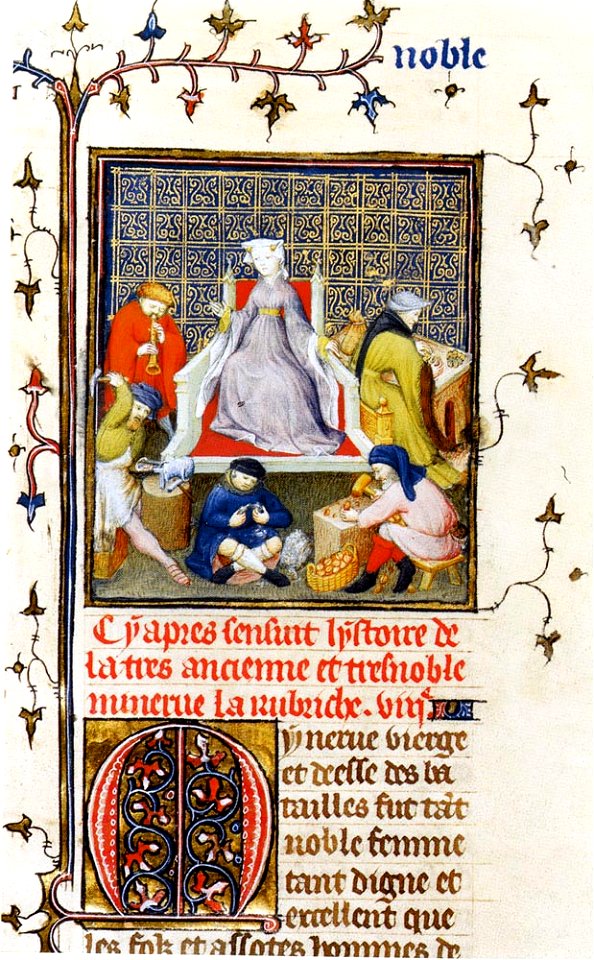 noble
Cy apres sensuit lystoire de
la tres ancienne et tresnoble
minerue la rubriche. viiie.
Mynerue vierge
et deesse des ba
tailles fut tāt
noble femme
tant digne et
excellent que
les folz et assotes hommes de